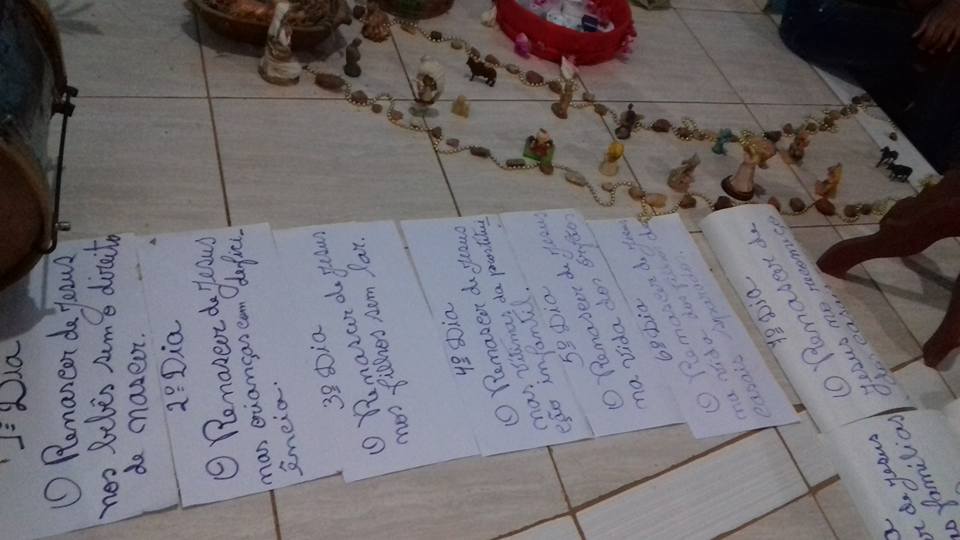 1º Dia
O Renascer de Jesus
nos bebês sem o direito
de nascer.
2º Dia
O Renascer de Jesus
nas crianças com defici-
ência.
3º Dia
O Renascer de Jesus
nos filhos sem lar.
4º Dia
O Renascer de Jesus
nas vítimas da prostitui-
ção infantil.
5º Dia
O Renascer de Jesus
na vida dos órfãos
6º Dia
O Renascer de Jesus
na vida dos
casais
7º Dia
O Renascer de
Jesus no
de Jesus
familias